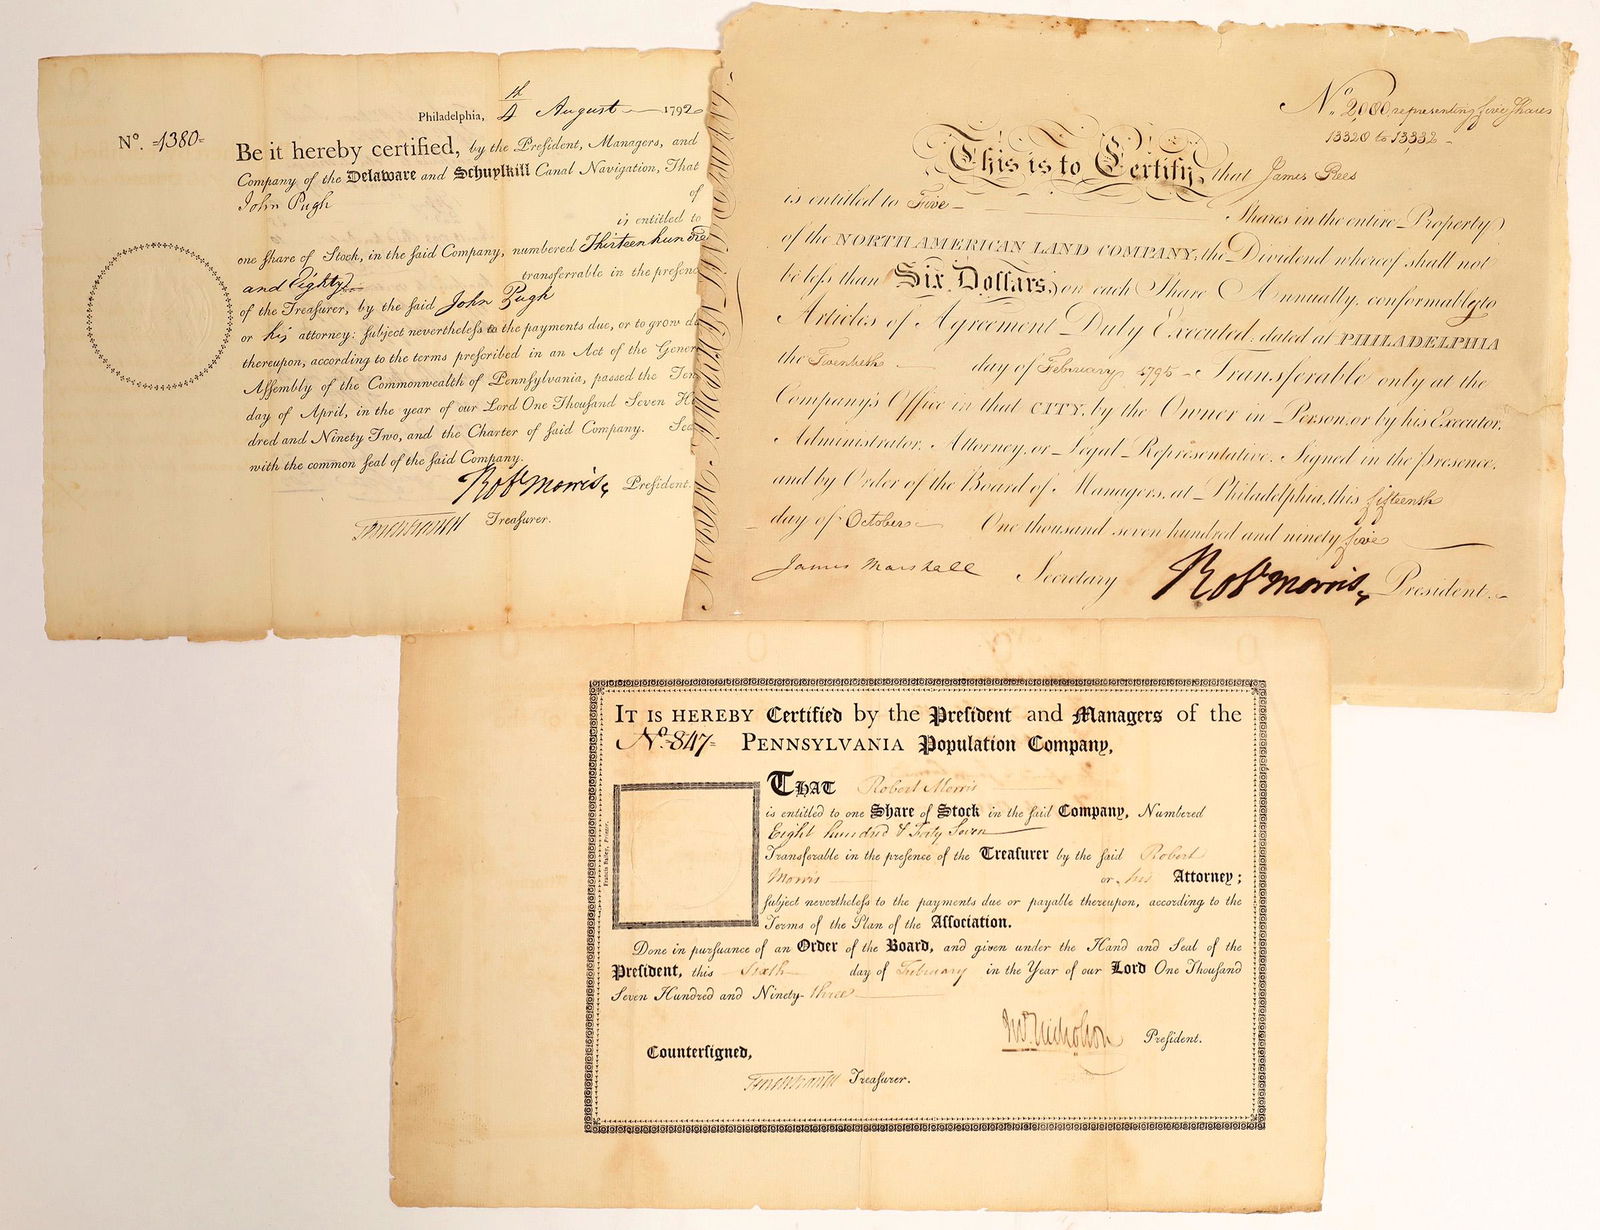 Philadelphia, 4th August 1792
No. 1380
Be it hereby certified, by the President, Managers, and
Company of the Delaware and Schuylkill Canal Navigation, That
John Pugh of
is entitled to
one share of Stock, in the said Company, numbered Thirteen hundred
and Eighty transferrable in the presenc
of the Treasurer, by the said John Pugh
or his attorney: subject nevertheless to the payments due, or to grow du
thereupon, according to the terms prescribed in an Act of the Gener
Assembly of the Commonwealth of Pennsylvania, passed the Ten
day of April, in the year of our Lord One Thousand Seven H
dred and Ninety Two, and the Charter of said Company. Sea
with the common seal of the said Company.
Robt Morris, President.
Treasurer.
No. 2000 representing five Shares
13328 to 13332
This is to Certify, that James Rees
is entitled to Five Shares in the entire Property
of the NORTH AMERICAN LAND COMPANY, the Dividend whereof shall not
be less than Six Dollars, on each Share Annually, conformably to
Articles of Agreement Duly Executed: dated at PHILADELPHIA
the Twentieth day of February 1795 Transferable only at the
Company's Office in that CITY, by the Owner in Person, or by his Executor,
Administrator, Attorney, or Legal Representative. Signed in the presence,
and by Order of the Board of Managers, at Philadelphia, this fifteenth
day of October One thousand seven hundred and ninety five
James Marshall Secretary Robt Morris, President.
IT IS HEREBY Certified by the President and Managers of the
No. 847 PENNSYLVANIA Population Company,
THAT Robert Morris
is entitled to one Share of Stock in the said Company, Numbered
Eight hundred & Forty Seven
Transferable in the presence of the Treasurer by the said Robert
Morris or his Attorney;
subject nevertheless to the payments due or payable thereupon, according to the
Terms of the Plan of the Association.
Francis Bailey, Printer.
Done in pursuance of an Order of the Board, and given under the Hand and Seal of the
President, this Sixth day of February in the Year of our Lord One Thousand
Seven Hundred and Ninety-three
Jno. Nicholson President.
Countersigned,
Treasurer.